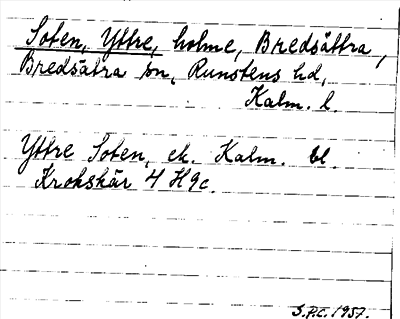 Soten, Yttre, holme, Bredsättra,
Bredsätra sn, Runstens hd,
Kalm. l.
Yttre Soten, ek. Kalm. bl.
Krokskär 4 H 9c.
S.P.C. 1957.